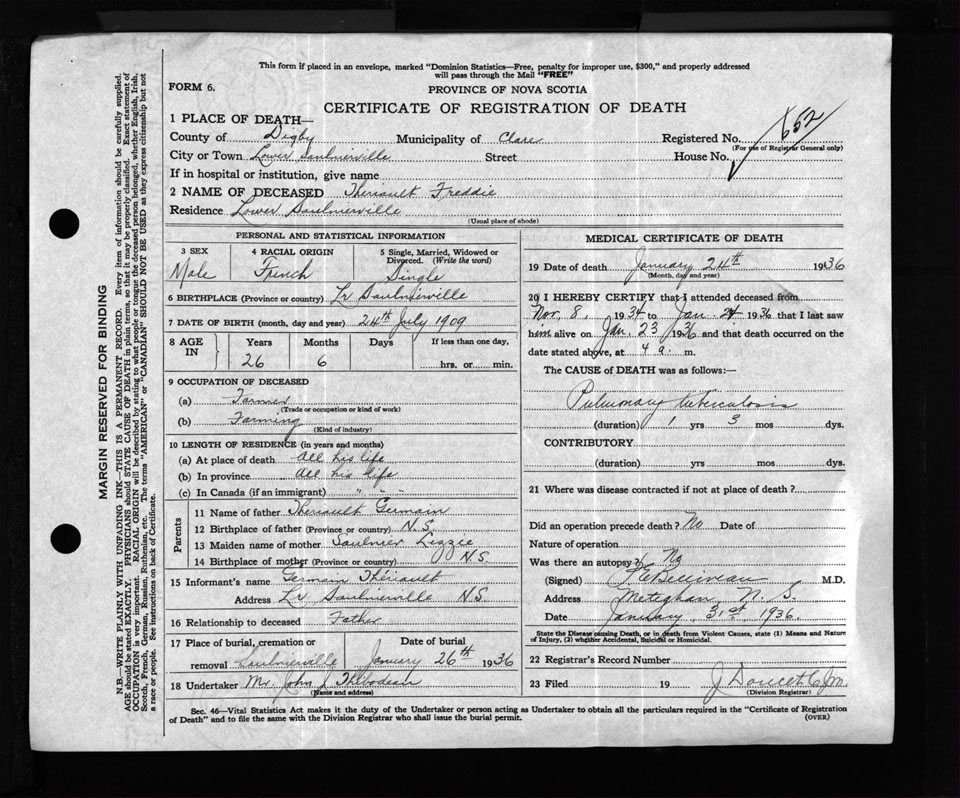 This form if placed in an envelope, marked "Dominion Statistics—Free, penalty for improper use, $300," and properly addressed
will pass through the Mail "FREE"
FORM 6.
PROVINCE OF NOVA SCOTIA
CERTIFICATE OF REGISTRATION OF DEATH
1 PLACE OF DEATH—
County of Digby Municipality of Clare Registered No. 652
(For use of Registrar General only)
City or Town Lower Saulnierville Street House No.
If in hospital or institution, give name
2 NAME OF DECEASED Theriault Freddie
Residence Lower Saulnierville
(Usual place of abode)
PERSONAL AND STATISTICAL INFORMATION
3 SEX 4 RACIAL ORIGIN 5 Single, Married, Widowed or
Divorced. (Write the word)
Male French Single
6 BIRTHPLACE (Province or country) Lr Saulnierville
7 DATE OF BIRTH (month, day and year) 24th July 1909
8 AGE IN Years Months Days If less than one day,
26 6 hrs. or min.
9 OCCUPATION OF DECEASED
(a) Farmer
(Trade or occupation or kind of work)
(b) Farming
(Kind of industry)
10 LENGTH OF RESIDENCE (in years and months)
(a) At place of death All his life
(b) In province All his life
(c) In Canada (if an immigrant) " " "
Parents
11 Name of father Theriault Germain
12 Birthplace of father (Province or country) N.S.
13 Maiden name of mother Saulnier Lizzie
14 Birthplace of mother (Province or country) N.S.
15 Informant's name Germain Thériault
Address Lr Saulnierville N.S.
16 Relationship to deceased Father
17 Place of burial, cremation or Date of burial
removal Saulnierville January 26th 1936
18 Undertaker Mr. John J Thibodeau
(Name and address)
MEDICAL CERTIFICATE OF DEATH
19 Date of death January 24th 1936
(Month, day and year)
20 I HEREBY CERTIFY that I attended deceased from
Nov. 8, 1934 to Jan. 24 1936 that I last saw
him alive on Jan. 23 1936 and that death occurred on
date stated above, at 4 a. m.
The CAUSE of DEATH was as follows:—
Pulmonary tuberculosis
(duration) 1 yrs 3 mos dys.
CONTRIBUTORY
(duration) yrs. mos. dys.
21 Where was disease contracted if not at place of death?
Did an operation precede death? No Date of
Nature of operation
Was there an autopsy? No
(Signed) Belliveau M.D.
Address Meteghan N. S.
Date January 31st 1936.
State the Disease causing Death, or in death from Violent Causes, state (1) Means and Nature
of Injury, (2) whether Accidental, Suicidal or Homicidal.
22 Registrar's Record Number
23 Filed 19 J Doucet
(Division Registrar)
Sec. 46—Vital Statistics Act makes it the duty of the Undertaker or person acting as Undertaker to obtain all the particulars required in the "Certificate of Registration
of Death" and to file the same with the Division Registrar who shall issue the burial permit.
(OVER)
MARGIN RESERVED FOR BINDING
N.B.—WRITE PLAINLY WITH UNFADING INK—THIS IS A PERMANENT RECORD. Every item of information should be carefully supplied.
AGE should be stated EXACTLY. PHYSICIANS should STATE CAUSE OF DEATH in plain terms, so that it may be properly classified. Exact statement of
OCCUPATION is very important. RACIAL ORIGIN will be described by stating to what people or tongue the deceased person belonged, whether English, Irish,
Scotch, French, German, Russian, Ruthenian, etc. The terms "AMERICAN" or "CANADIAN" SHOULD NOT BE USED as they express citizenship but not
a race or people. See instructions on back of Certificate.